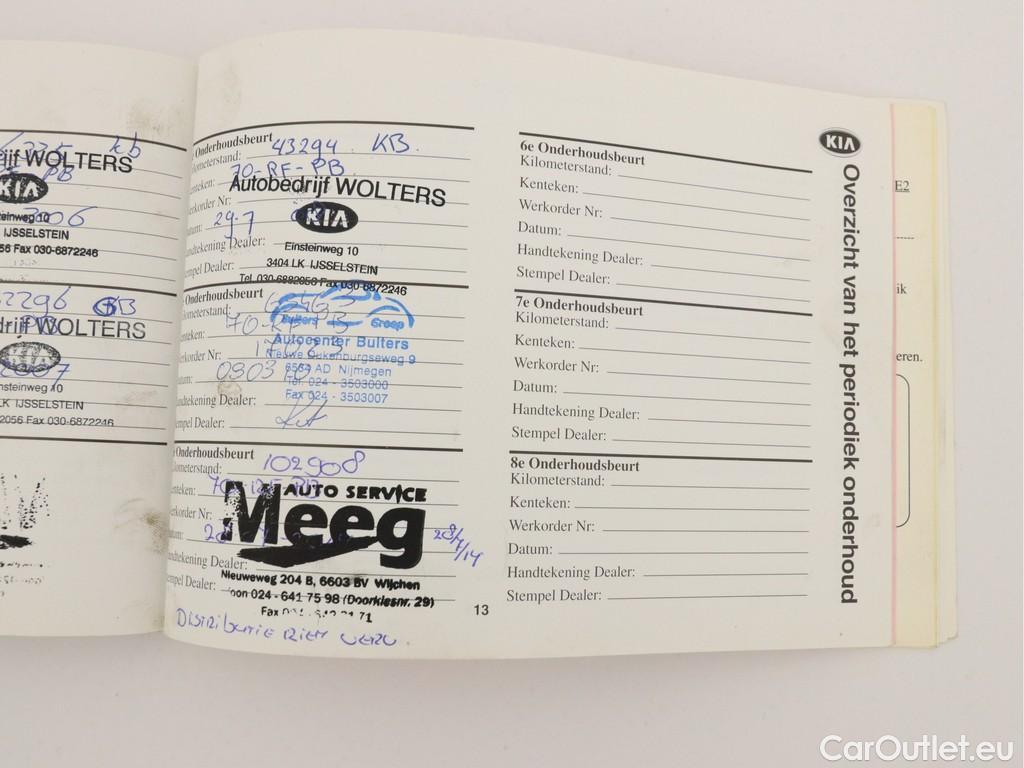 335 kb
ijf WOLTERS
PB
KIA
teinweg 10
306
IJSSELSTEIN
56 Fax 030-6872246
2296 KB
drijf WOLTERS
KIA
nsteinweg 10
LK IJSSELSTEIN
2056 Fax 030-6872246
Onderhoudsbeurt
Kilometerstand: 43294 KB.
Kenteken: 70-RF-PB
Autobedrijf WOLTERS
Werkorder Nr:
Datum: 29-7
KIA
Handtekening Dealer:
Einsteinweg 10
Stempel Dealer: 3404 LK IJSSELSTEIN
Tel. 030-6882056 Fax 030-6872246
Onderhoudsbeurt
Kilometerstand:
Bulters Groep
Kenteken: 70-RF-PB
Autocenter Bulters
Werkorder Nr:
Nieuwe Dukenburgseweg 9
6534 AD Nijmegen
Datum: 090310
Tel. 024 - 3503000
Handtekening Dealer:
024 - 3503007
Stempel Dealer:
Onderhoudsbeurt
Kilometerstand: 102908
Kenteken: 70-RF-PB
AUTO SERVICE
Meeg
Werkorder Nr:
Datum: 28/7/14
Handtekening Dealer:
Nieuweweg 204 B, 6603 BV Wijchen
Stempel Dealer:
foon 024 - 641 75 98 (Doorkiesnr. 29)
Fax 71
13
DISTRIBUTIE RIEM VERV.
6e Onderhoudsbeurt
Kilometerstand:
Kenteken:
Werkorder Nr:
Datum:
Handtekening Dealer:
Stempel Dealer:
7e Onderhoudsbeurt
Kilometerstand:
Kenteken:
Werkorder Nr:
Datum:
Handtekening Dealer:
Stempel Dealer:
8e Onderhoudsbeurt
Kilometerstand:
Kenteken:
Werkorder Nr:
Datum:
Handtekening Dealer:
Stempel Dealer:
KIA
Overzicht van het periodiek onderhoud
E2
ik
eren.
CarOutlet.eu